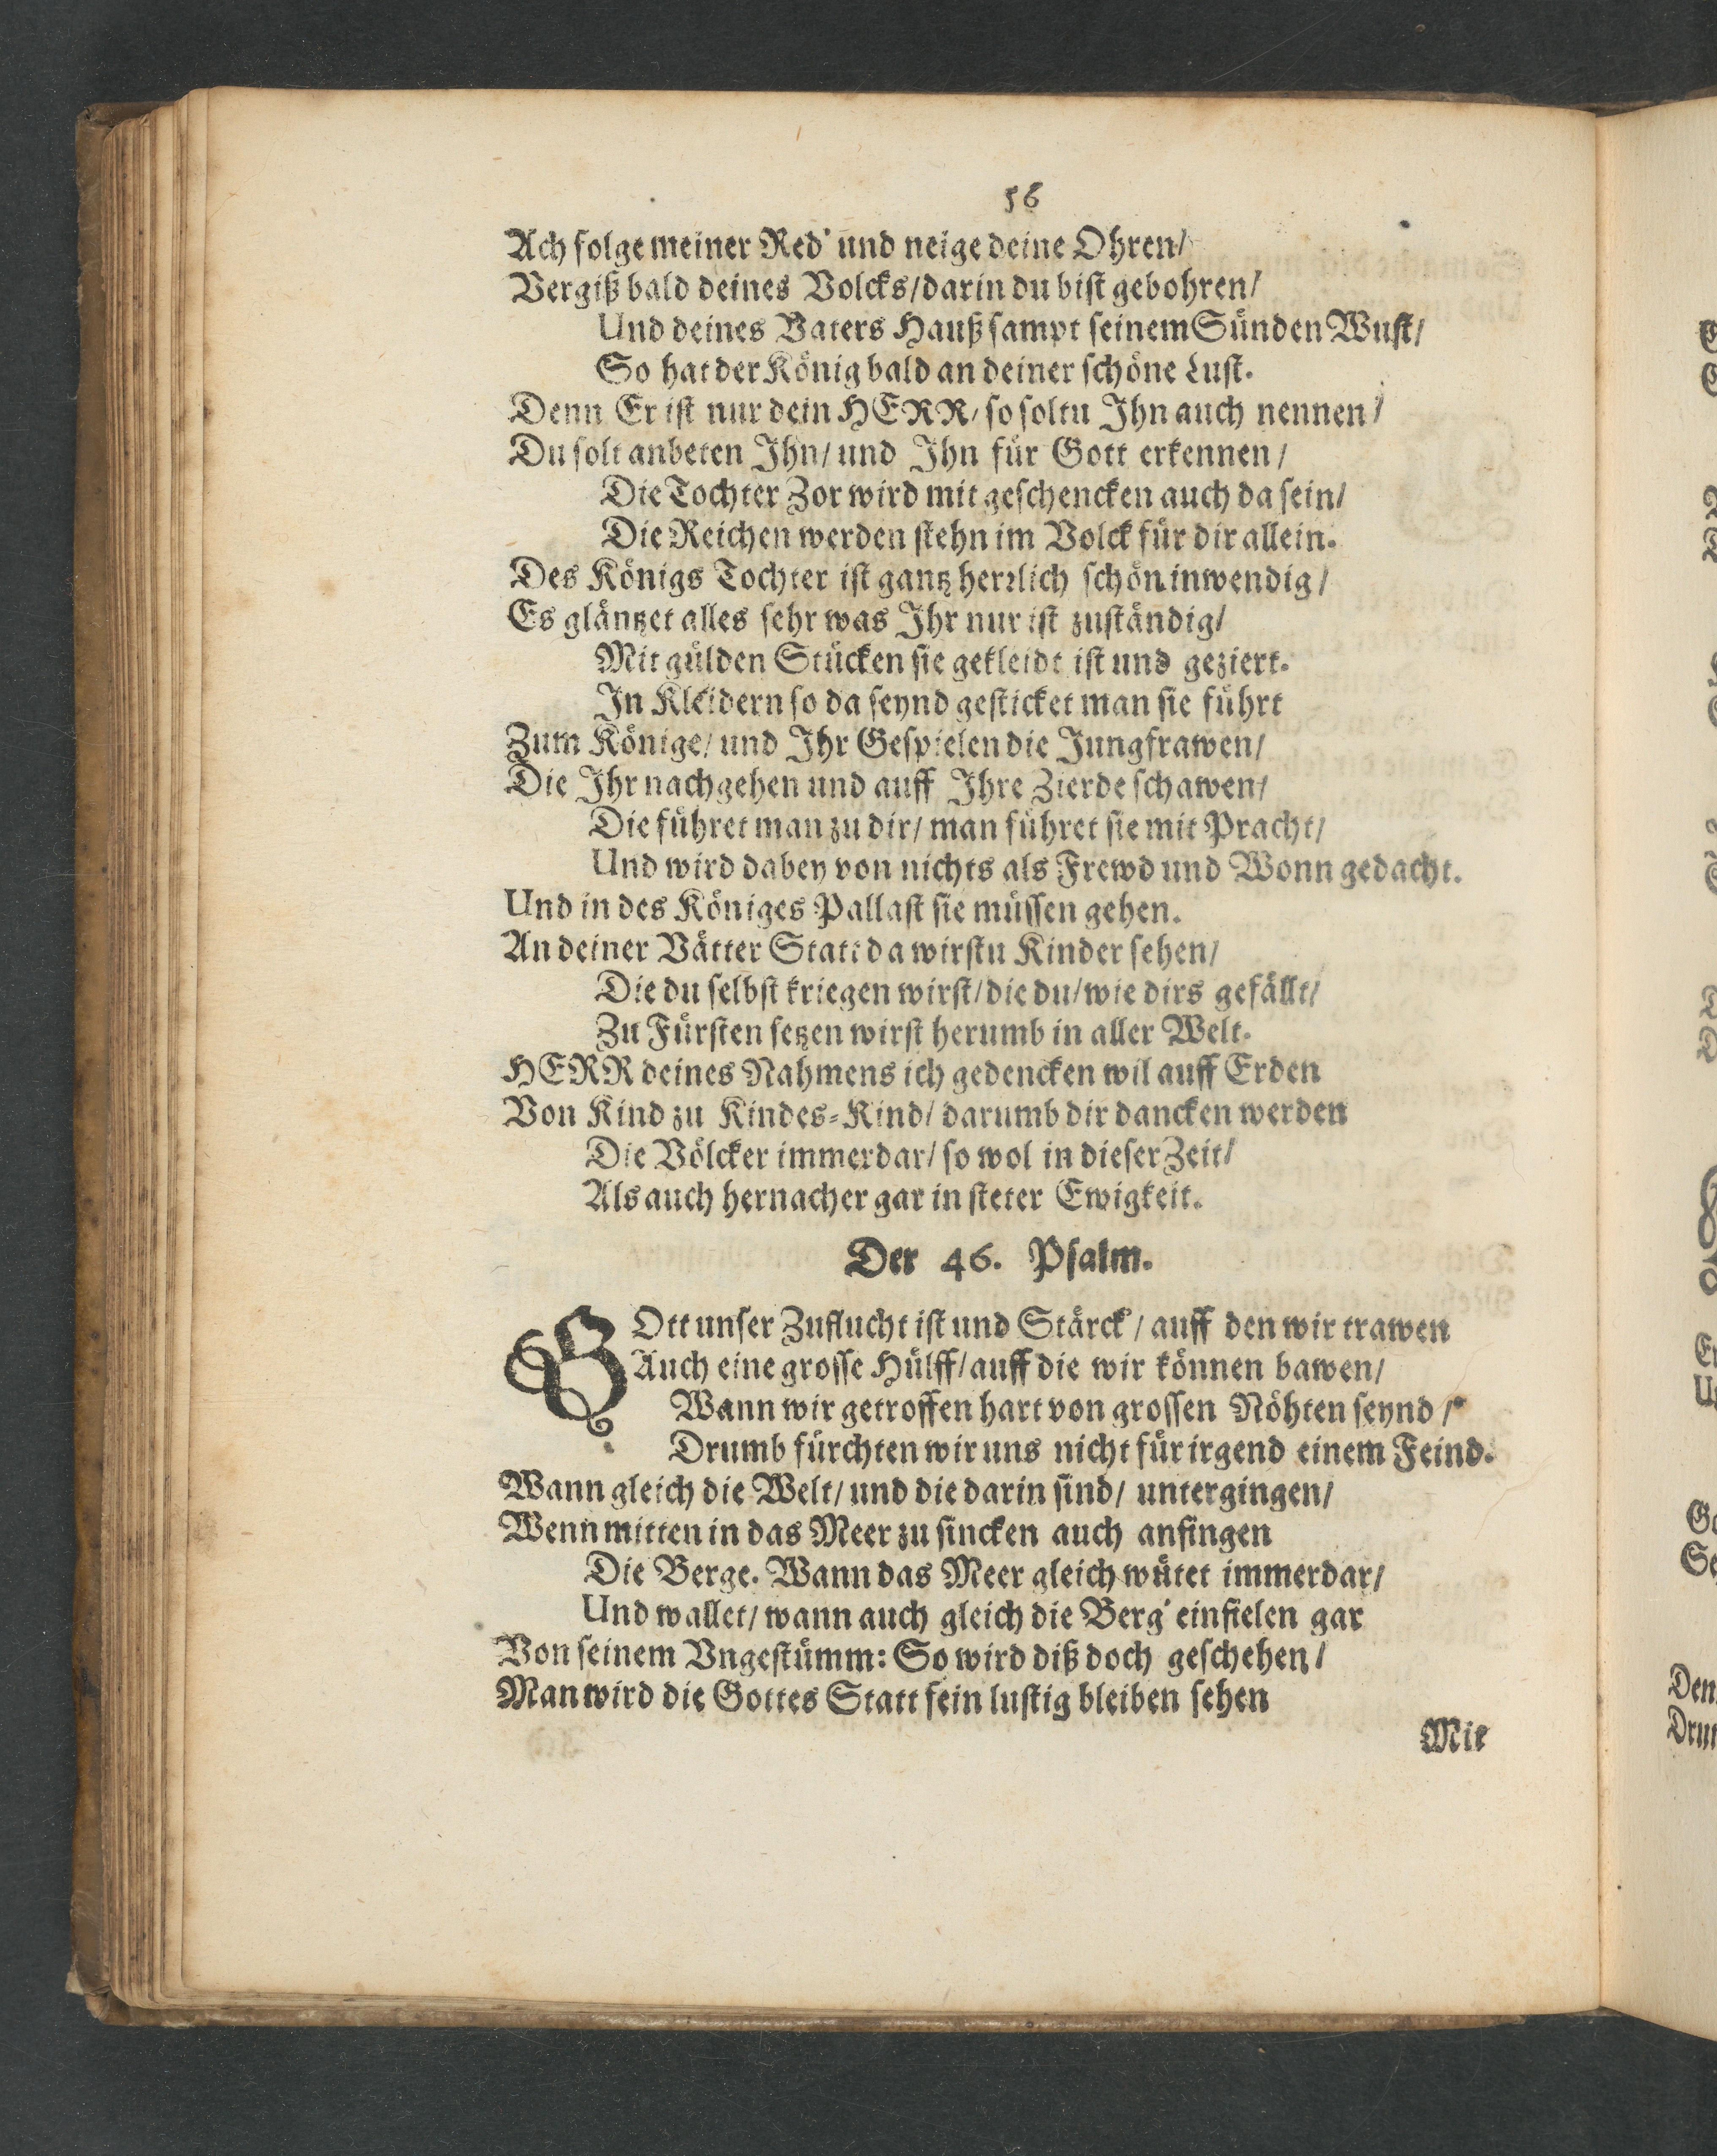 56
Ach folge meiner Red' und neige deine Ohren/
Vergiß bald deines Volcks/darin du bist gebohren/
Und deines Vaters Hauß sampt seinem Sünden Wust/
So hat der König bald an deiner schöne Lust.
Denn Er ist nur dein HERR/ so soltu Ihn auch nennen/
Du solt anbeten Ihn/ und Ihn für Gott erkennen/
Die Tochter Zor wird mit geschencken auch da sein/
Die Reichen werden stehn im Volck für dir allein.
Des Königs Tochter ist gantz herrlich schön inwendig/
Es gläntzet alles sehr was Ihr nur ist zuständig/
Mit gülden Stücken sie gekleidt ist und geziert.
In Kleidern so da seynd gesticket man sie führt
Zum Könige/ und Ihr Gespielen die Jungfrawen/
Die Ihr nachgehen und auff Ihre Zierde schawen/
Die führet man zu dir/ man führet sie mit Pracht/
Und wird dabey von nichts als Frewd und Wonn gedacht.
Und in des Königes Pallast sie müssen gehen.
An deiner Vätter Statt da wirstu Kinder sehen/
Die du selbst kriegen wirst/die du/wie dirs gefällt/
Zu Fürsten setzen wirst herumb in aller Welt.
HERR deines Nahmens ich gedencken wil auff Erden
Von Kind zu Kindes-Kind/ darumb dir dancken werden
Die Völcker immerdar/ so wol in dieser Zeit/
Als auch hernacher gar in steter Ewigkeit.
Der 46. Psalm.
GOtt unser Zuflucht ist und Stärck'/ auff den wir trawen
Auch eine grosse Hülff/auff die wir können bawen/
Wann wir getroffen hart von grossen Nöhten seynd/
Drumb fürchten wir uns nicht für irgend einem Feind.
Wann gleich die Welt/ und die darin sind/ untergingen/
Wenn mitten in das Meer zu sincken auch anfingen
Die Berge. Wann das Meer gleich wütet immerdar/
Und wallet/ wann auch gleich die Berg' einfielen gar
Von seinem Vngestümm: So wird diß doch geschehen/
Man wird die Gottes Statt fein lustig bleiben sehen
Mit